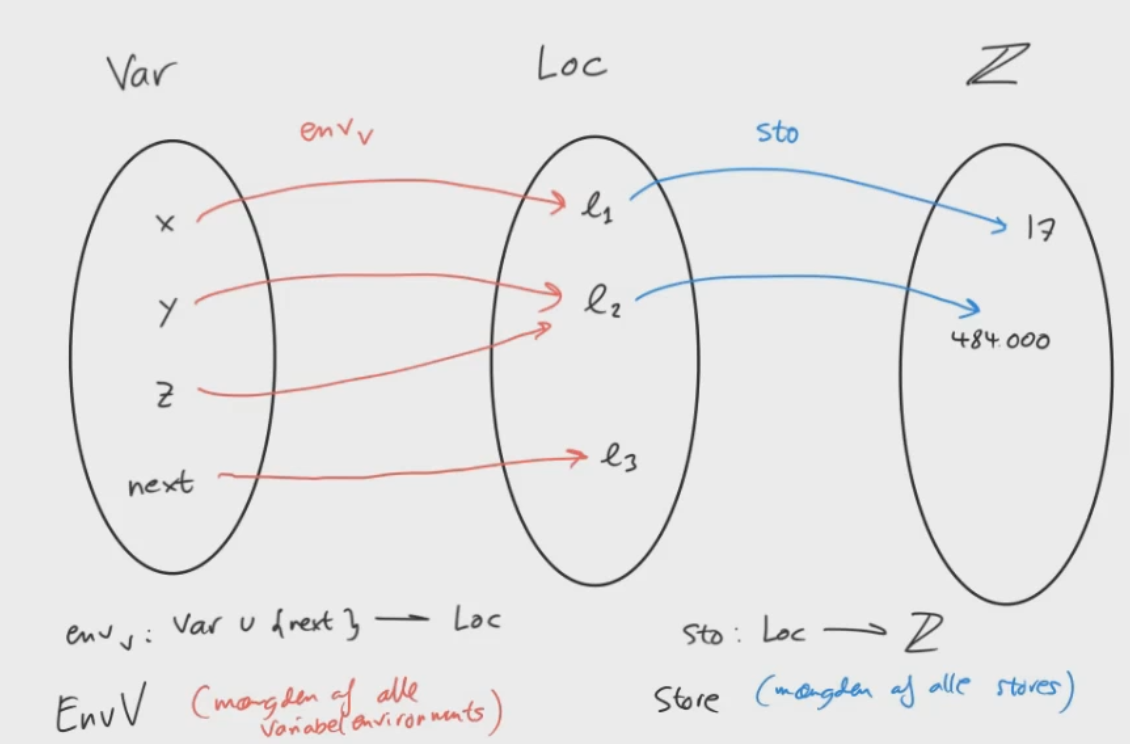 Var Loc ℤ
env_v sto
x l₁ 17
y l₂
484.000
z
next l₃
env_v : Var ∪ {next} → Loc sto : Loc → ℤ
EnvV (mængden af alle variabelenvironments) Store (mængden af alle stores)